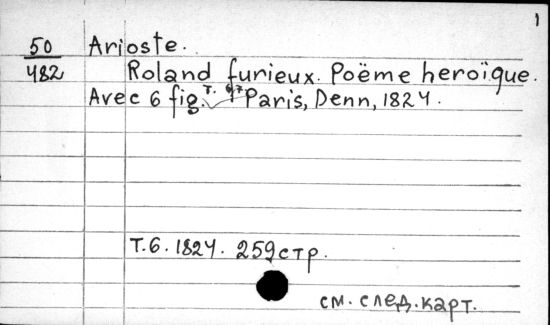 1
50 Arioste.
482 Roland furieux. Poëme heroïque.
Avec 6 fig. т. 6, 7 Paris, Denn, 1824.
Т. 6. 1824. 259 стр.
см. след. карт.